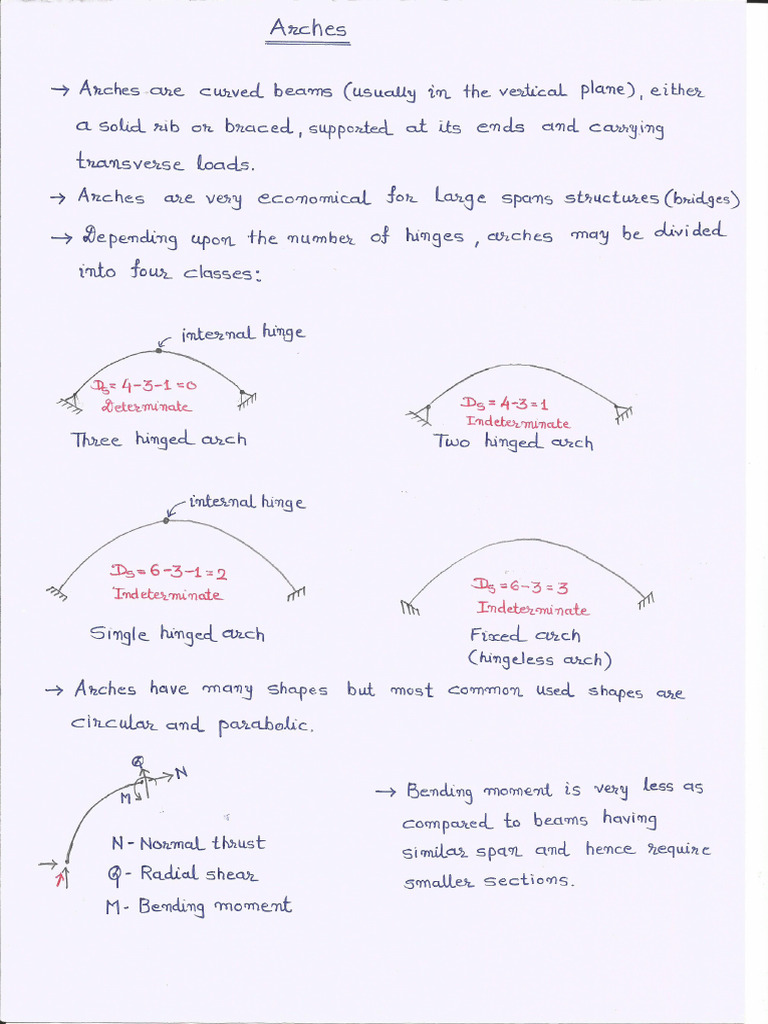 Arches
→ Arches are curved beams (usually in the vertical plane), either
a solid rib or braced, supported at its ends and carrying
transverse loads.
→ Arches are very economical for large spans structures (bridges)
→ Depending upon the number of hinges, arches may be divided
into four classes:
internal hinge
Ds = 4-3-1=0
Determinate
Three hinged arch
Ds = 4-3=1
Indeterminate
Two hinged arch
internal hinge
Ds = 6-3-1=2
Indeterminate
Single hinged arch
Ds = 6-3=3
Indeterminate
Fixed arch
(hingeless arch)
→ Arches have many shapes but most common used shapes are
circular and parabolic.
Q
N
M
N - Normal thrust
Q - Radial shear
M - Bending moment
→ Bending moment is very less as
compared to beams having
similar span and hence require
smaller sections.